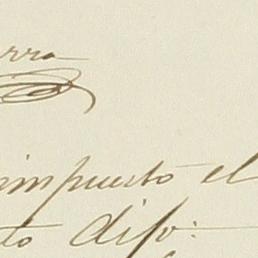 erra
impuesto el
to difo: